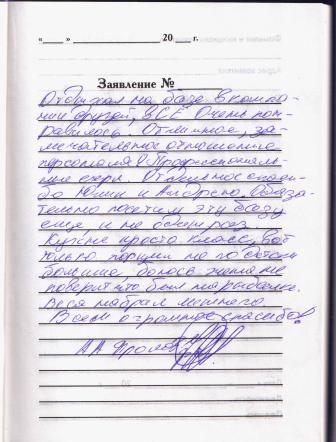 «____» ____________ 20___ г.
Заявление №
Отдыхал на базе в компа-
нии друзей, ВСЁ Очень пон-
равилось. Отличное, за-
мечательное отношение
персонала. Профессиональ-
ные егеря. Отдельное спаси-
бо Юлии и Андрею. Обяза-
тельно посетим эту базу
ещё и не один раз.
Кухня просто класс, вот
только порции не по детски
большие боюсь жена не
поверит что был на рыбалке.
Веса набрал много
Всем огромное спасибо!
А.А. Фролов